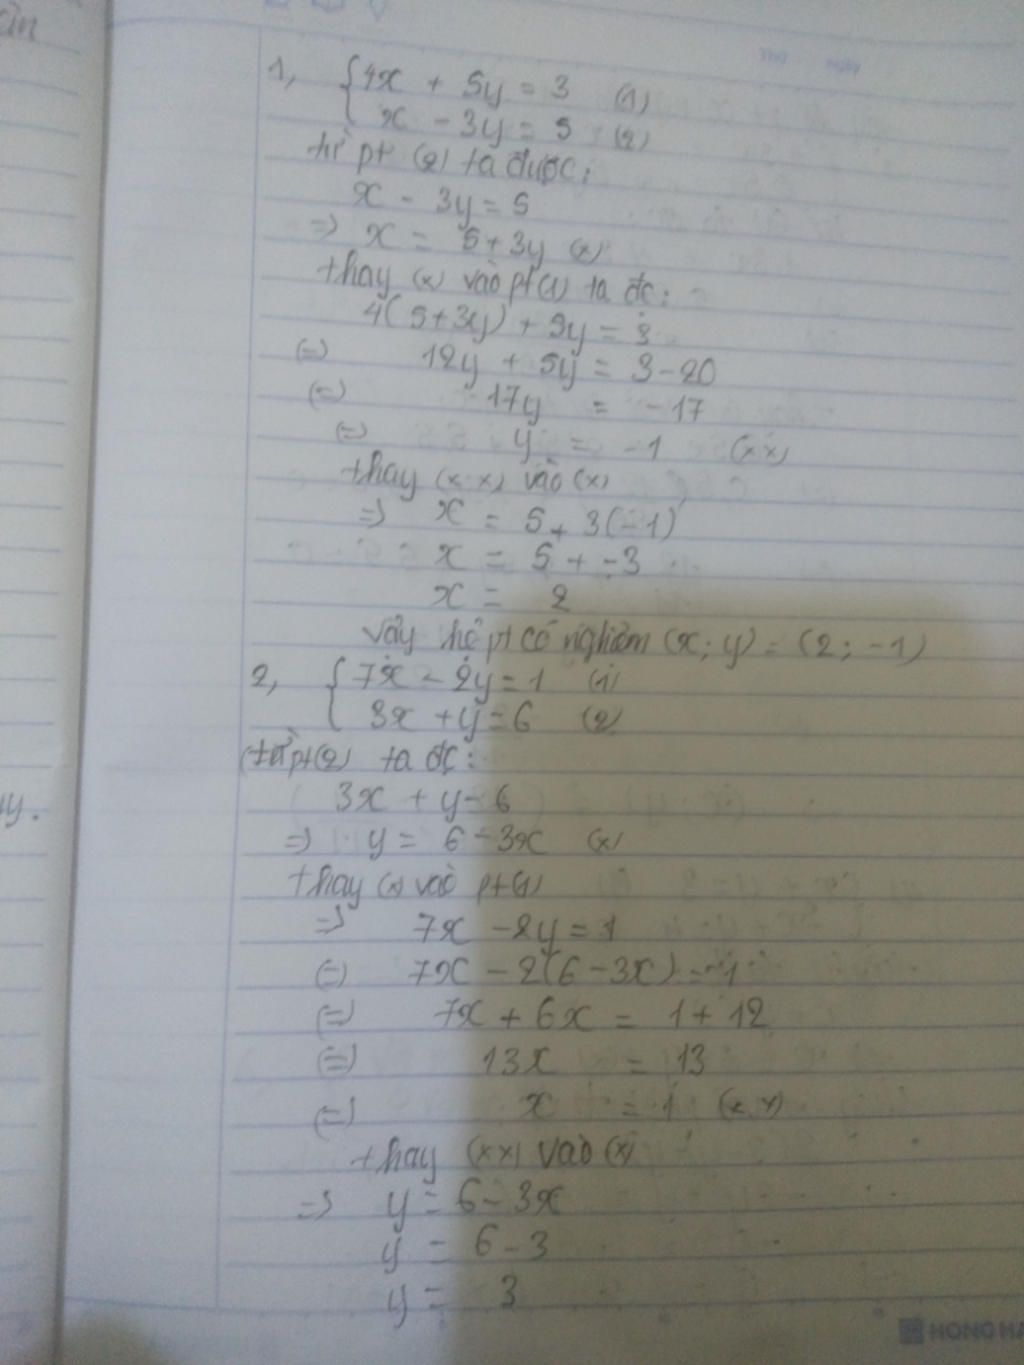 1, { 4x + 5y = 3 (1)
x - 3y = 5 (2)
từ pt (2) ta được:
x - 3y = 5
=> x = 5 + 3y (x)
thay (x) vào pt(1) ta đc:
4(5+3y) + 5y = 3
(=) 12y + 5y = 3 - 20
(=) 17y = -17
(=) y = -1 (xx)
thay (xx) vào (x)
=> x = 5 + 3(-1)
x = 5 + -3
x = 2
vậy hệ pt có nghiệm (x; y) = (2; -1)
2, { 7x - 2y = 1 (1)
3x + y = 6 (2)
(từ pt(2) ta đc:
3x + y = 6
=> y = 6 - 3x (x)
thay (x) vào pt(1)
=> 7x - 2y = 1
(=) 7x - 2(6 - 3x) = 1
(=) 7x + 6x = 1 + 12
(=) 13x = 13
(=) x = 1 (xx)
thay (xx) vào (x)
=> y = 6 - 3x
y = 6 - 3
y = 3
HONG HA